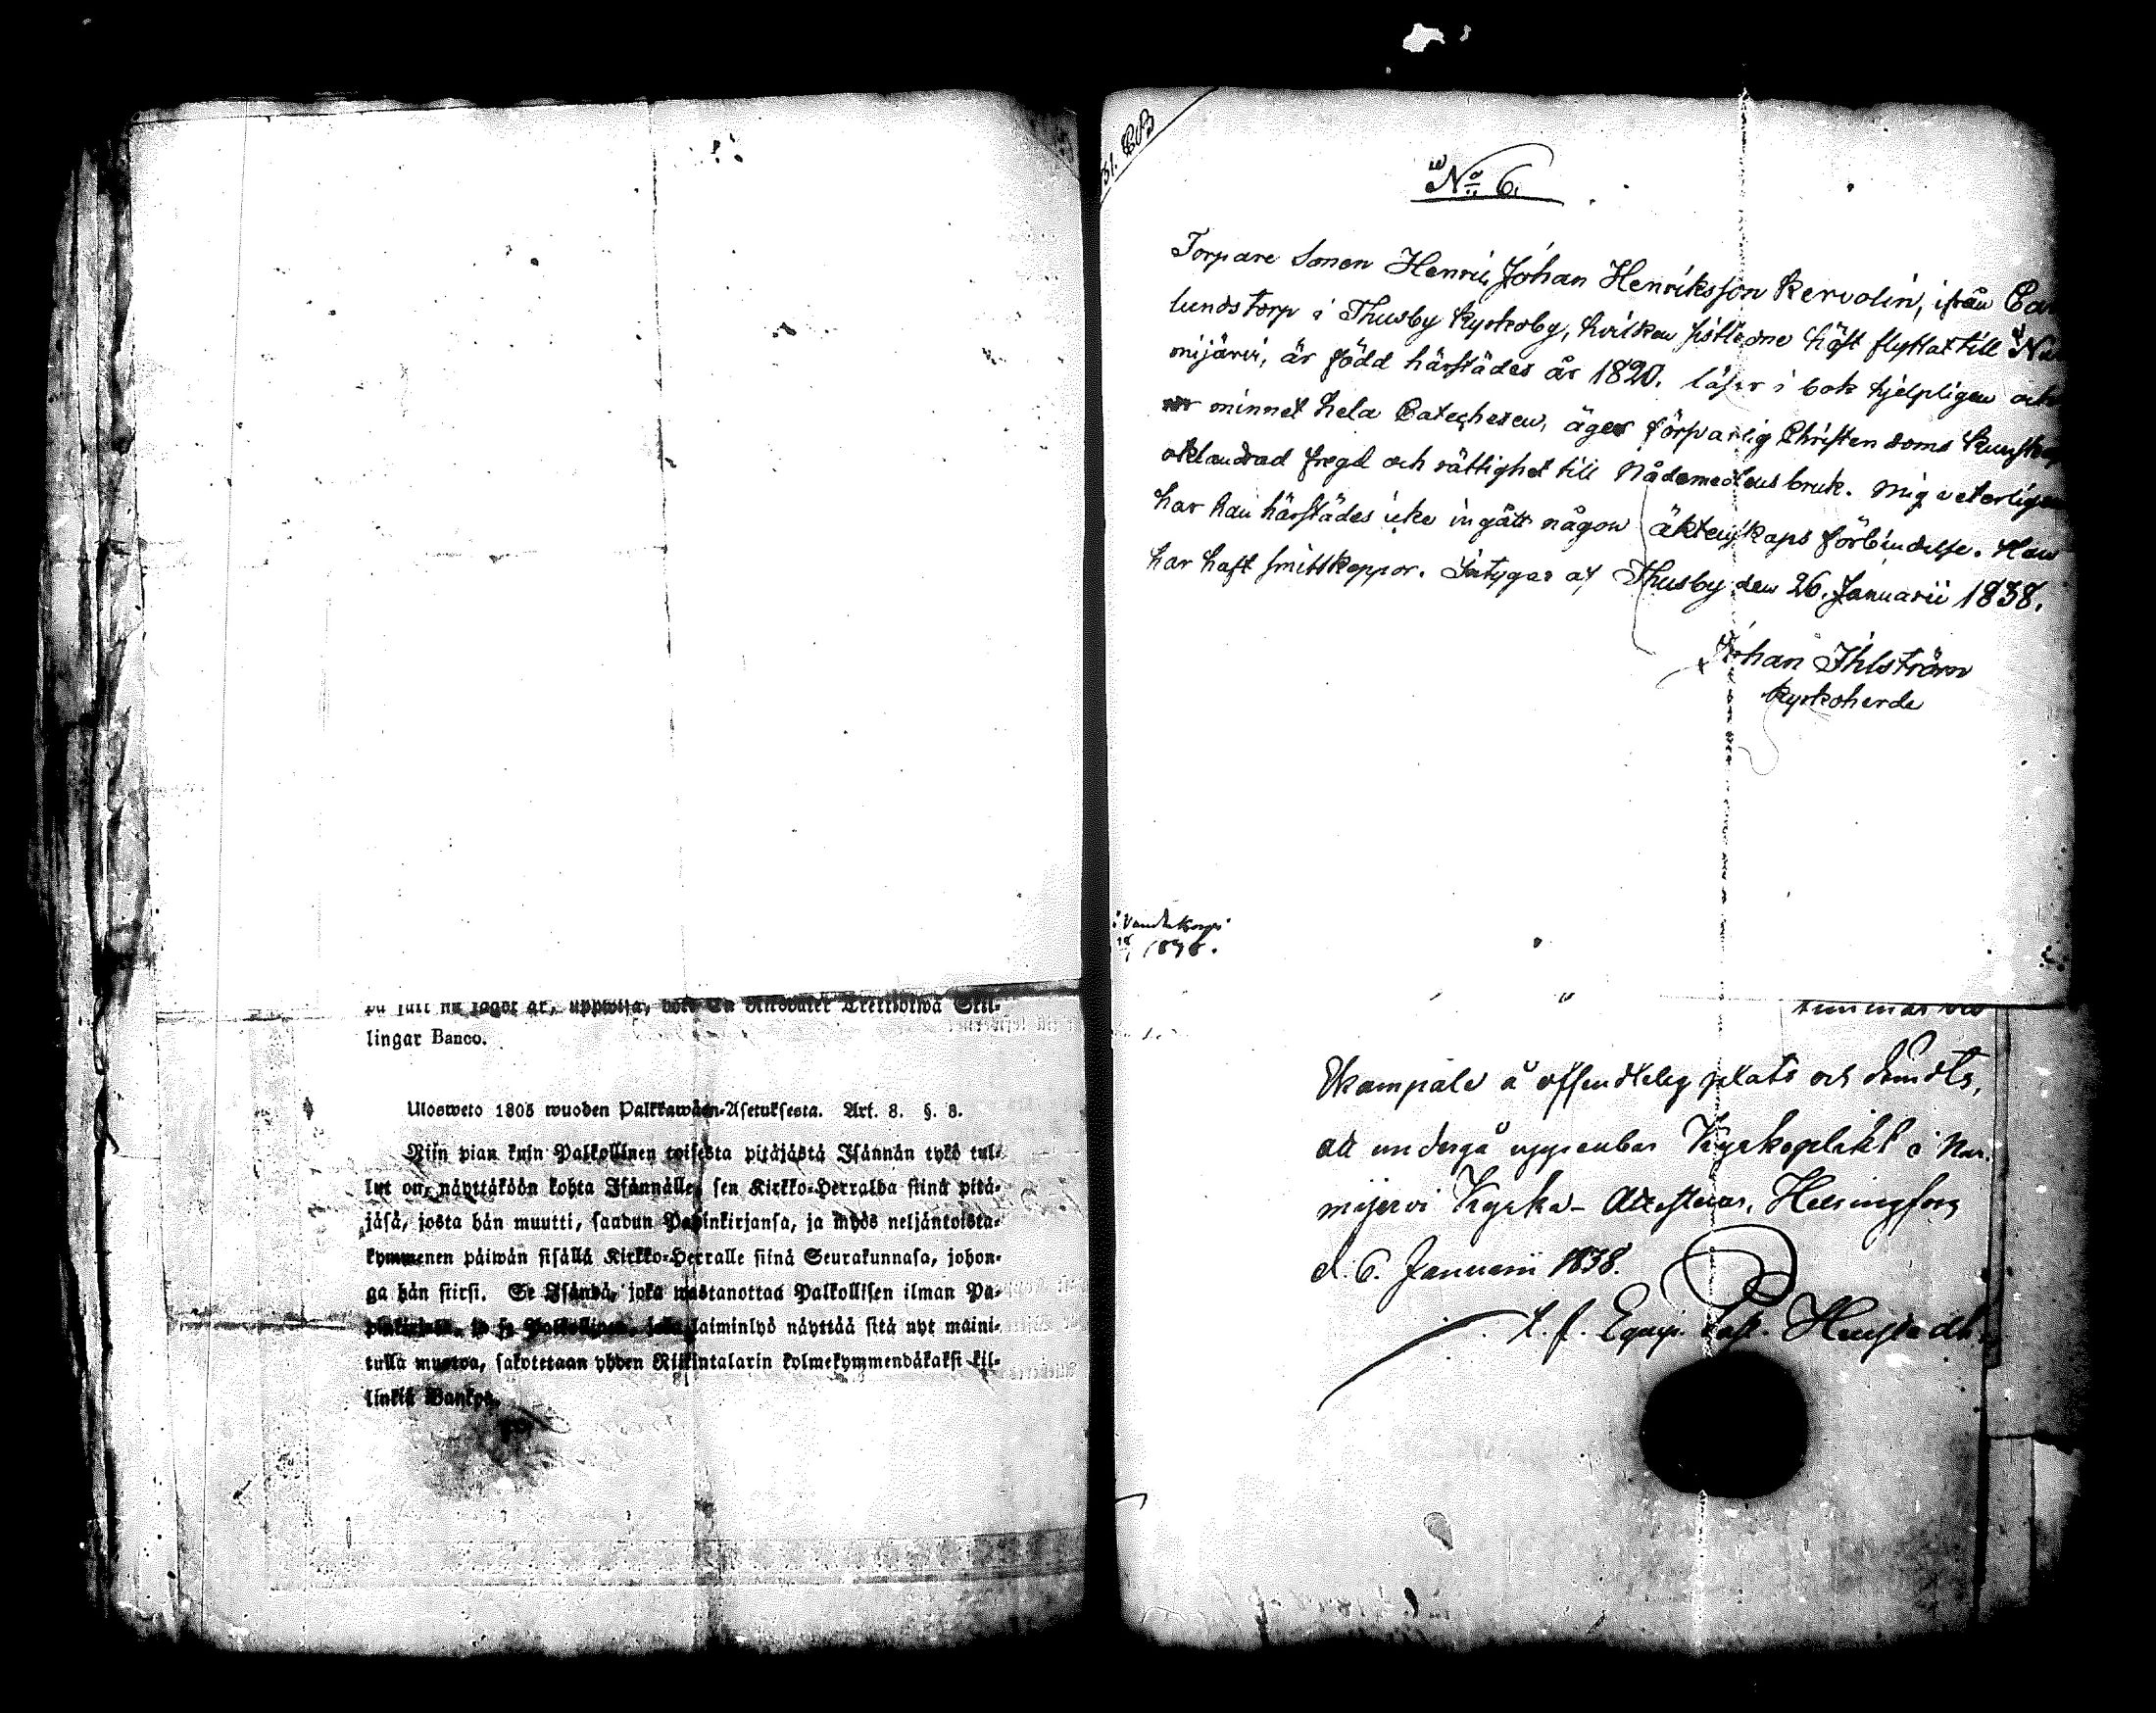 lingar Banco.
Ulosweto 1805 wuoden Palkkawäen-Asetuksesta. Art. 8. §. 8.
Niin pian kuin Palkollinen toisesta pitäjästä Isännän tykö tul-
lut on, näyttäköön kohta Isännälle, sen Kirkko-Herralda siinä pitä-
jäsä, josta hän muutti, saadun Papinkirjansa, ja myös neljäntoista-
kymmenen päiwän sisällä Kirkko-Herralle siinä Seurakunnasa, johon-
ga hän siirsi. Se Isändä, joka wastanottaa Palkollisen ilman Pa-
pinkirjata, ja se Palkollinen, joka laiminlyö näyttää sitä nyt maini-
tulla muotoa, sakotetaan yhden Riikintalarin kolmekymmendäkaksi kil-
linkiä Bankos.
No 6.
Torpare Sonen Henric Johan Henriksson Kervolin, ifrån
lunds torp i Thusby Kyrkoby, hvilken sistledne höst flyttat till
mijärvi, är född härstädes år 1820. läser i bok hjelpligen och
minnet hela Catechesen, äger försvarlig Christendoms kunskap
oklandrad fregd och rättighet till Nådemedlens bruk. Mig veterligen
har han härstädes icke ingått någon äktenskaps förbindelse. Han
har haft smittkoppor. Intygar af Thusby den 26. Januarii 1838.
Johan Ihlström
Kyrkoherde
1838.
å offendtelig plats och
att undergå uppenbar Kyrkoplikt i Nur-
mijervi Kyrka - Attesteras, Helsingfors
d. 6. Januarii 1838.